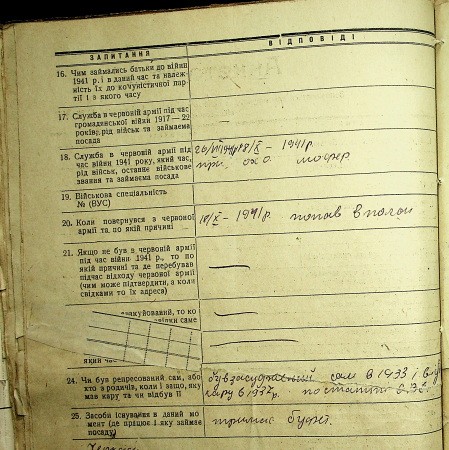 ЗАПИТАННЯ
ВІДПОВІДІ
16. Чим займались батьки до війни
1941 р. і в даний час та належ-
ність їх до комуністичної пар-
тії і з якого часу
17. Служба в червоній армії під час
громадянської війни 1917—22
років, рід військ та займаєма
посада
18. Служба в червоній армії під
час війни 1941 року, який час,
рід військ, останнє військове
звання та займаєма посада
18/X – 1941 р.
19. Військова спеціальність
№ (ВУС)
20. Коли повернувся з червоної
армії та по якій причині
18/X – 1941 р. попав в полон
21. Якщо не був в червоній армії
під час війни 1941 р., то по
якій причині та де перебував
підчас відходу червоної армії
(чим може підтвердити, а коли
свідками то їх адреса)
евакуйований, то ко
який час
24. Чи був репресований сам, або
хто з родичів, коли і защо, яку
мав кару та чи відбув її
був засуджений сам в 1933 і
кару в 1937 р. по статті
25. Засоби існування в даний мо-
мент (де працює і яку займає
посаду)
тримає буфет.